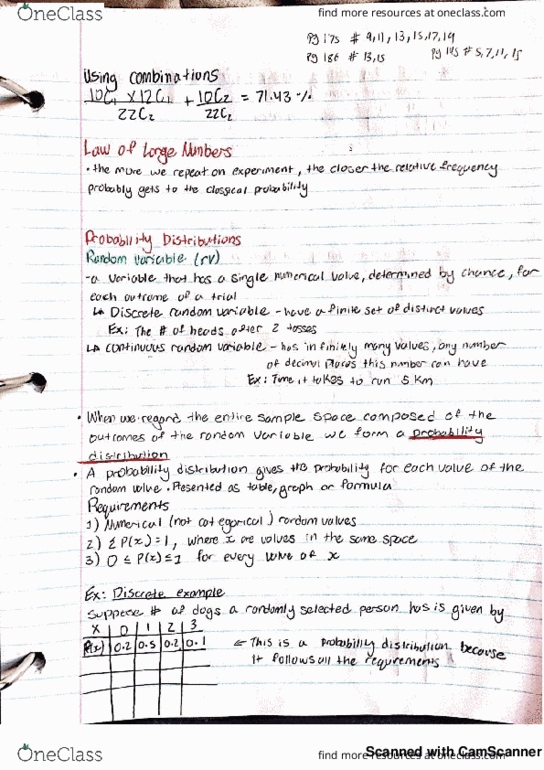 OneClass
find more resources at oneclass.com
Pg 175 # 9,11,13,15,17,19
Pg 186 # 13,15
Using combinations
10C1 x 12C1 + 10C2 = 71.43 %
22C2 22C2
Law of Large Numbers
• the more we repeat an experiment, the closer the relative frequency
probably gets to the classical probability
Probability Distributions
Random variable (rv)
- a variable that has a single numerical value, determined by chance, for
each outcome of a trial
↳ Discrete random variable - have a finite set of distinct values
Ex: The # of heads after 2 tosses
↳ continuous random variable - has infinitely many values, any number
of decimal places this number can have
Ex: Time it takes to run 5 km
• When we regard the entire sample space composed of the
outcomes of the random variable we form a probability
distribution
• A probability distribution gives the probability for each value of the
random value. Presented as table, graph or formula
Requirements
1) Numerical (not categorical) random values
2) Σ P(x) = 1, where x are values in the same space
3) 0 ≤ P(x) ≤ 1 for every value of x
Ex: Discrete example
Suppose # of dogs a randomly selected person has is given by
X 0 1 2 3
P(x) 0.2 0.5 0.2 0.1 ← This is a probability distribution because
it follows all the requirements
OneClass
find more resources at oneclass.com
Scanned with CamScanner